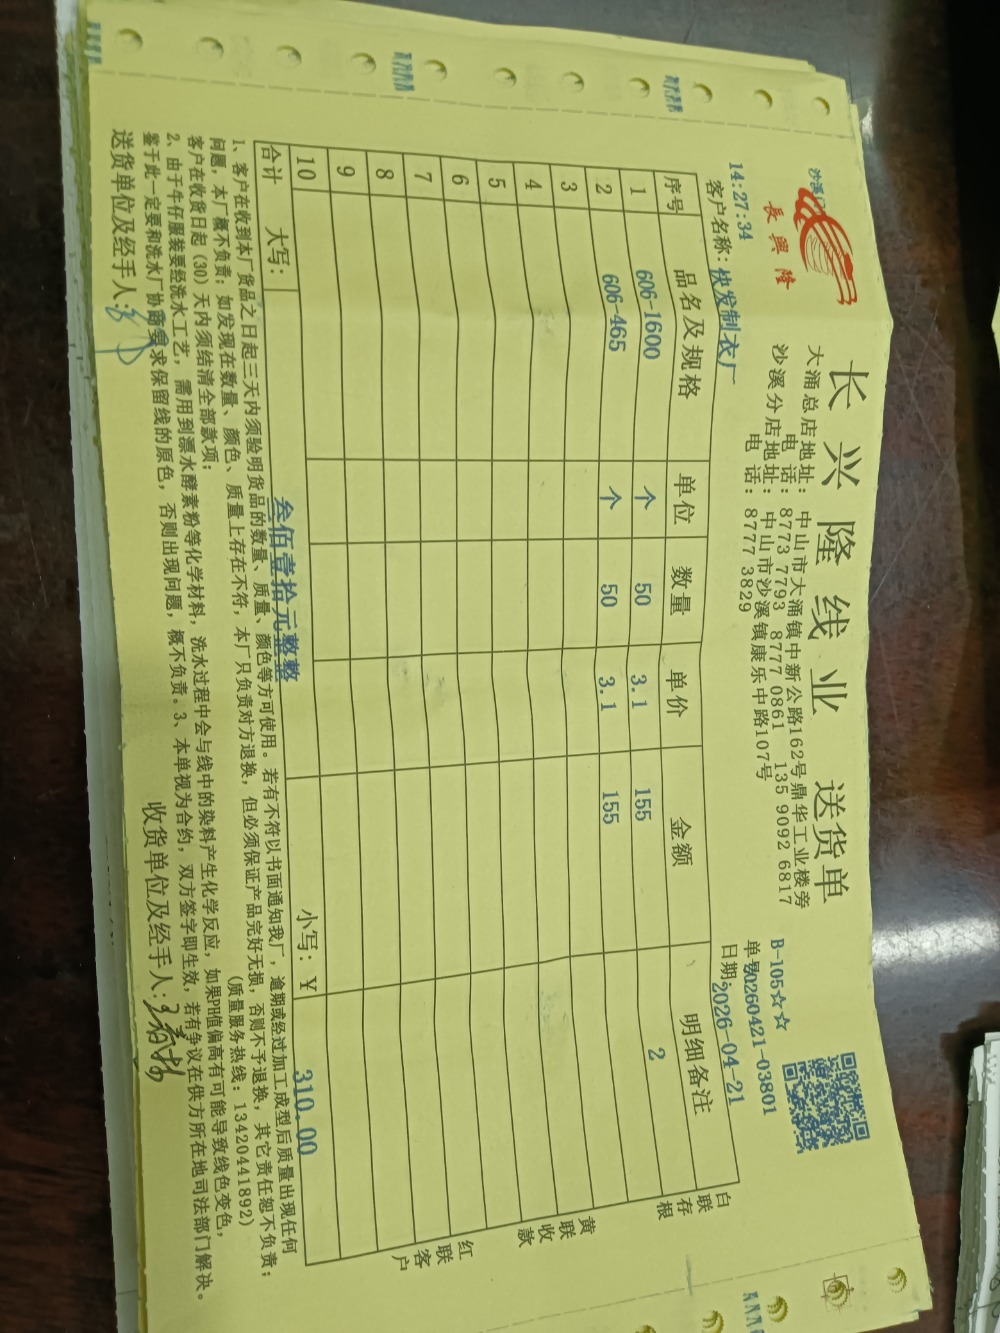 長興隆
长兴隆线业 送货单
大涌总店地址：中山市大涌镇中新公路162号鼎华工业楼旁
电话：8773 7793 8777 0861 135 9092 6817
沙溪分店地址：中山市沙溪镇康乐中路107号
电话：8777 3829
B-105☆☆
单号20260421-03801
14:27:34
客户名称：快发制衣厂
日期：2026-04-21
序号 品名及规格 单位 数量 单价 金额 明细备注
1 606-1600 个 50 3.1 155 2
2 606-465 个 50 3.1 155
3
4
5
6
7
8
9
10
合计 大写： 叁佰壹拾元整整 小写：￥ 310.00
白联存根
黄联收款
红联客户
1、客户在收到本厂货品之日起三天内须验明货品的数量、质量、颜色等方可使用。若有不符以书面通知我厂，逾期或经过加工成型后质量出现任何
问题，本厂概不负责；如发现在数量、颜色、质量上存在不符，本厂只负责对方退换，但必须保证产品完好无损，否则不予退换，其它责任恕不负责；
客户在收货日起(30)天内须结清全部款项； (质量服务热线：13420441892)
2、由于牛仔服装要经洗水工艺，需用到漂水酵素粉等化学材料，洗水过程中会与线中的染料产生化学反应，如果PH值偏高有可能导致线色变色，
鉴于此一定要和洗水厂协商要求保留线的原色，否则出现问题，概不负责。3、本单视为合约，双方签字即生效，若有争议在供方所在地司法部门解决。
送货单位及经手人：
收货单位及经手人：